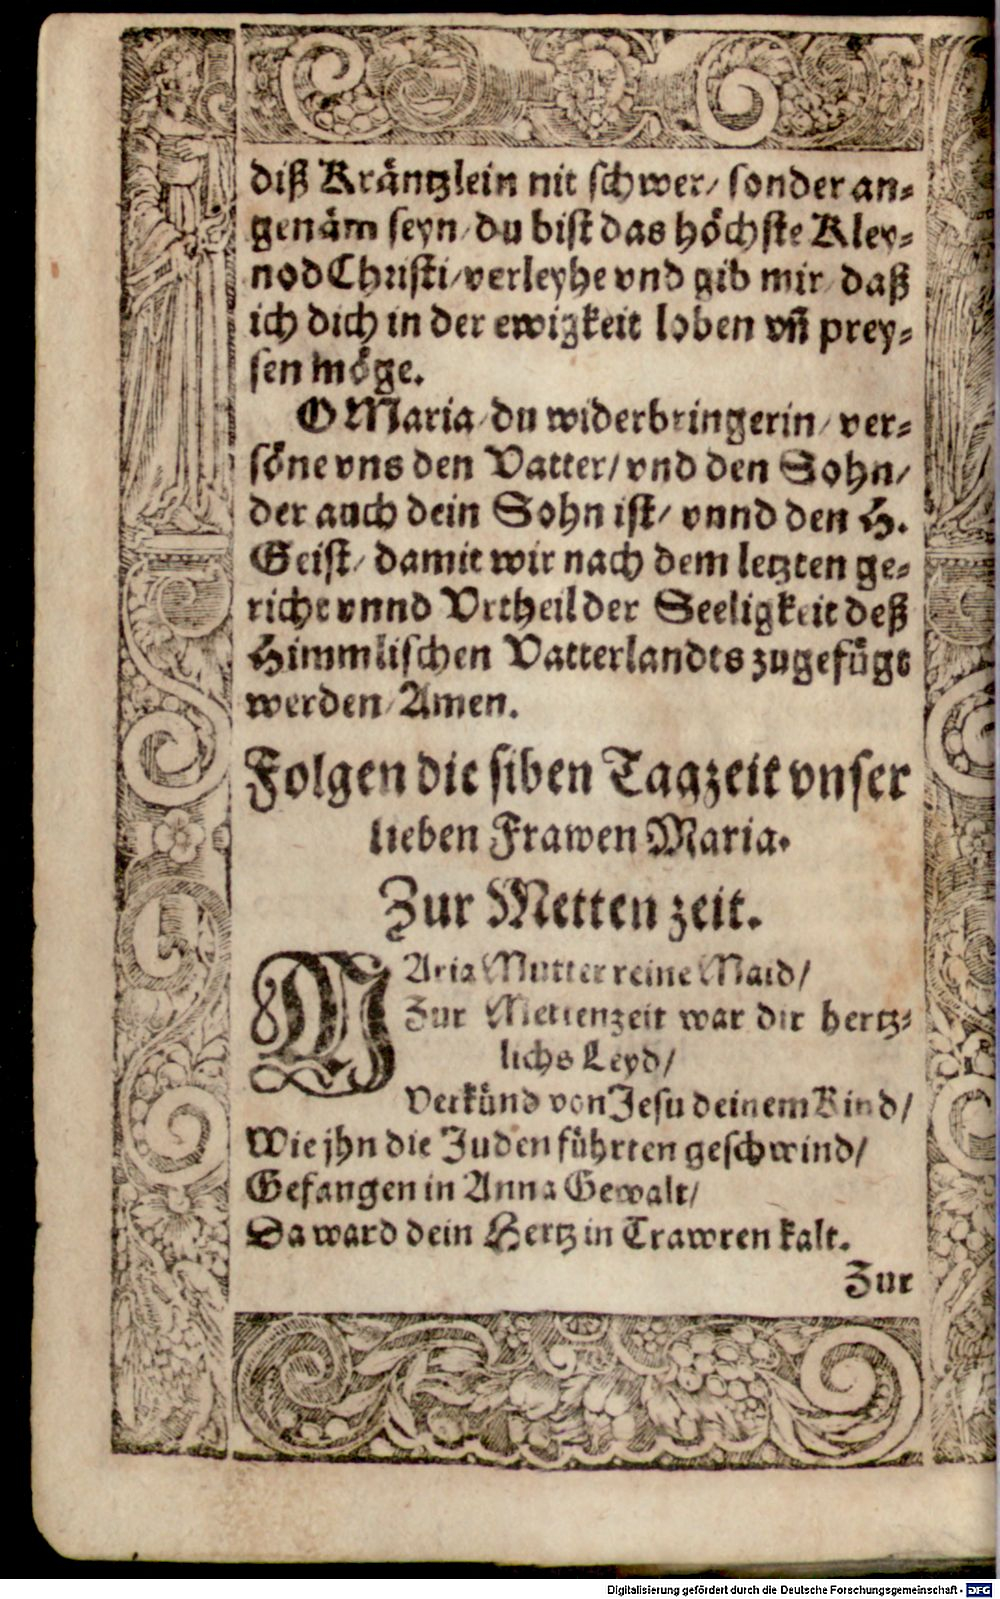 diß Kräntzlein nit schwer/ sonder an-
genäm seyn/ du bist das höchste Kley-
nod Christi/ verleyhe vnd gib mir/ daß
ich dich in der ewigkeit loben vñ prey-
sen möge.
O Maria/ du widerbringerin/ ver-
söne vns den Vatter/ vnd den Sohn/
der auch dein Sohn ist/ vnnd den H.
Geist/ damit wir nach dem letzten ge-
richt vnnd Vrtheil der Seeligkeit deß
Himmlischen Vatterlandts zugefügt
werden/ Amen.
Folgen die siben Tagzeit vnser
lieben Frawen Maria.
Zur Metten zeit.
MAria Mutter reine Maid/
Zur Mettenzeit war dir hertz-
lichs Leyd/
Verkünd von Jesu deinem Kind/
Wie jhn die Juden führten geschwind/
Gefangen in Anna Gewalt/
Da ward dein Hertz in Trawren kalt.
Zur
Digitalisierung gefördert durch die Deutsche Forschungsgemeinschaft - DFG